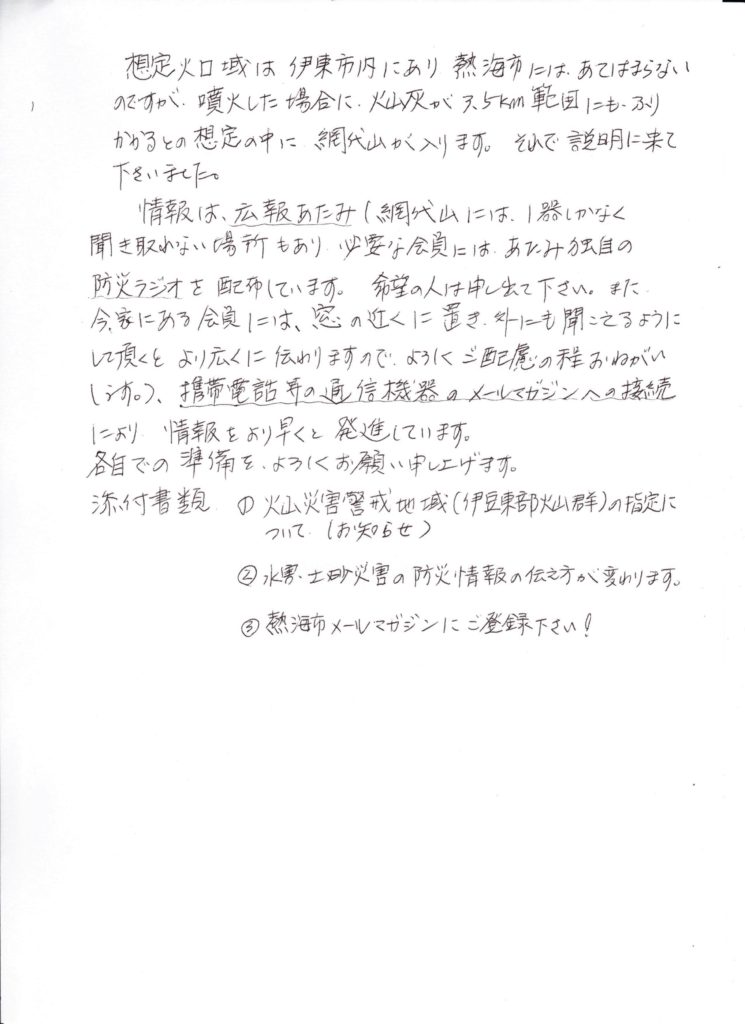 想定火口域は伊東市内にあり熱海市には、あてはまらない
のですが、噴火した場合に、火山灰が3.5km範囲にも、ふり
かかるとの想定の中に網代山が入ります。それで説明に来て
下さいました。
情報は、広報あたみ(網代山には、1器しかなく
聞き取れない場所もあり必要な会員には、あたみ独自の
防災ラジオを配布しています。希望の人は申し出て下さい。また
今、家にある会員には、窓の近くに置き、外にも聞こえるように
して頂くとより広くに伝わりますので、よろしくご配慮の程おねがい
します。)、携帯電話等の通信機器のメールマガジンへの接続
により、情報をより早くと発進しています。
各自での準備を、よろしくお願い申し上げます。
添付書類 ① 火山災害警戒地域(伊豆東部火山群)の指定に
ついて(お知らせ)
② 水害・土砂災害の防災情報の伝え方が変わります。
③ 熱海市メールマガジンにご登録下さい!